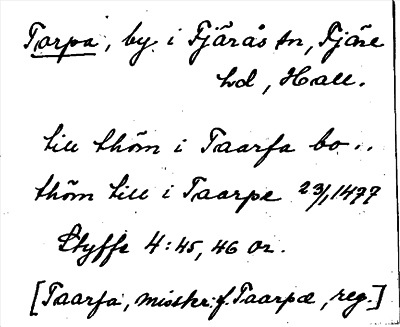 Torpa, by i Fjärås sn, Fjäre
hd, Hall.
till thöm i Taarfa bo..
thöm till i Taarpe 23/1, 1477
Styffe 4:45, 46 or.
[Taarfa, misskr. f. Taarpæ, reg.]